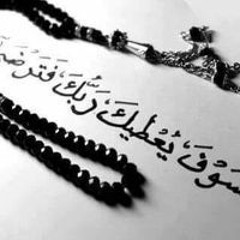 سَوْفَ يُعْطِيكَ رَبُّكَ فَتَرْضَى